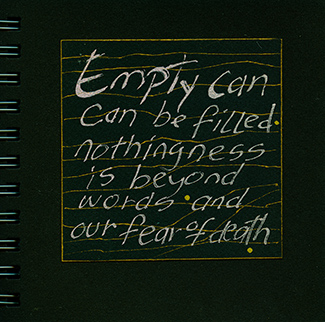 Empty can
can be filled
nothingness
is beyond
words and
our fear of death